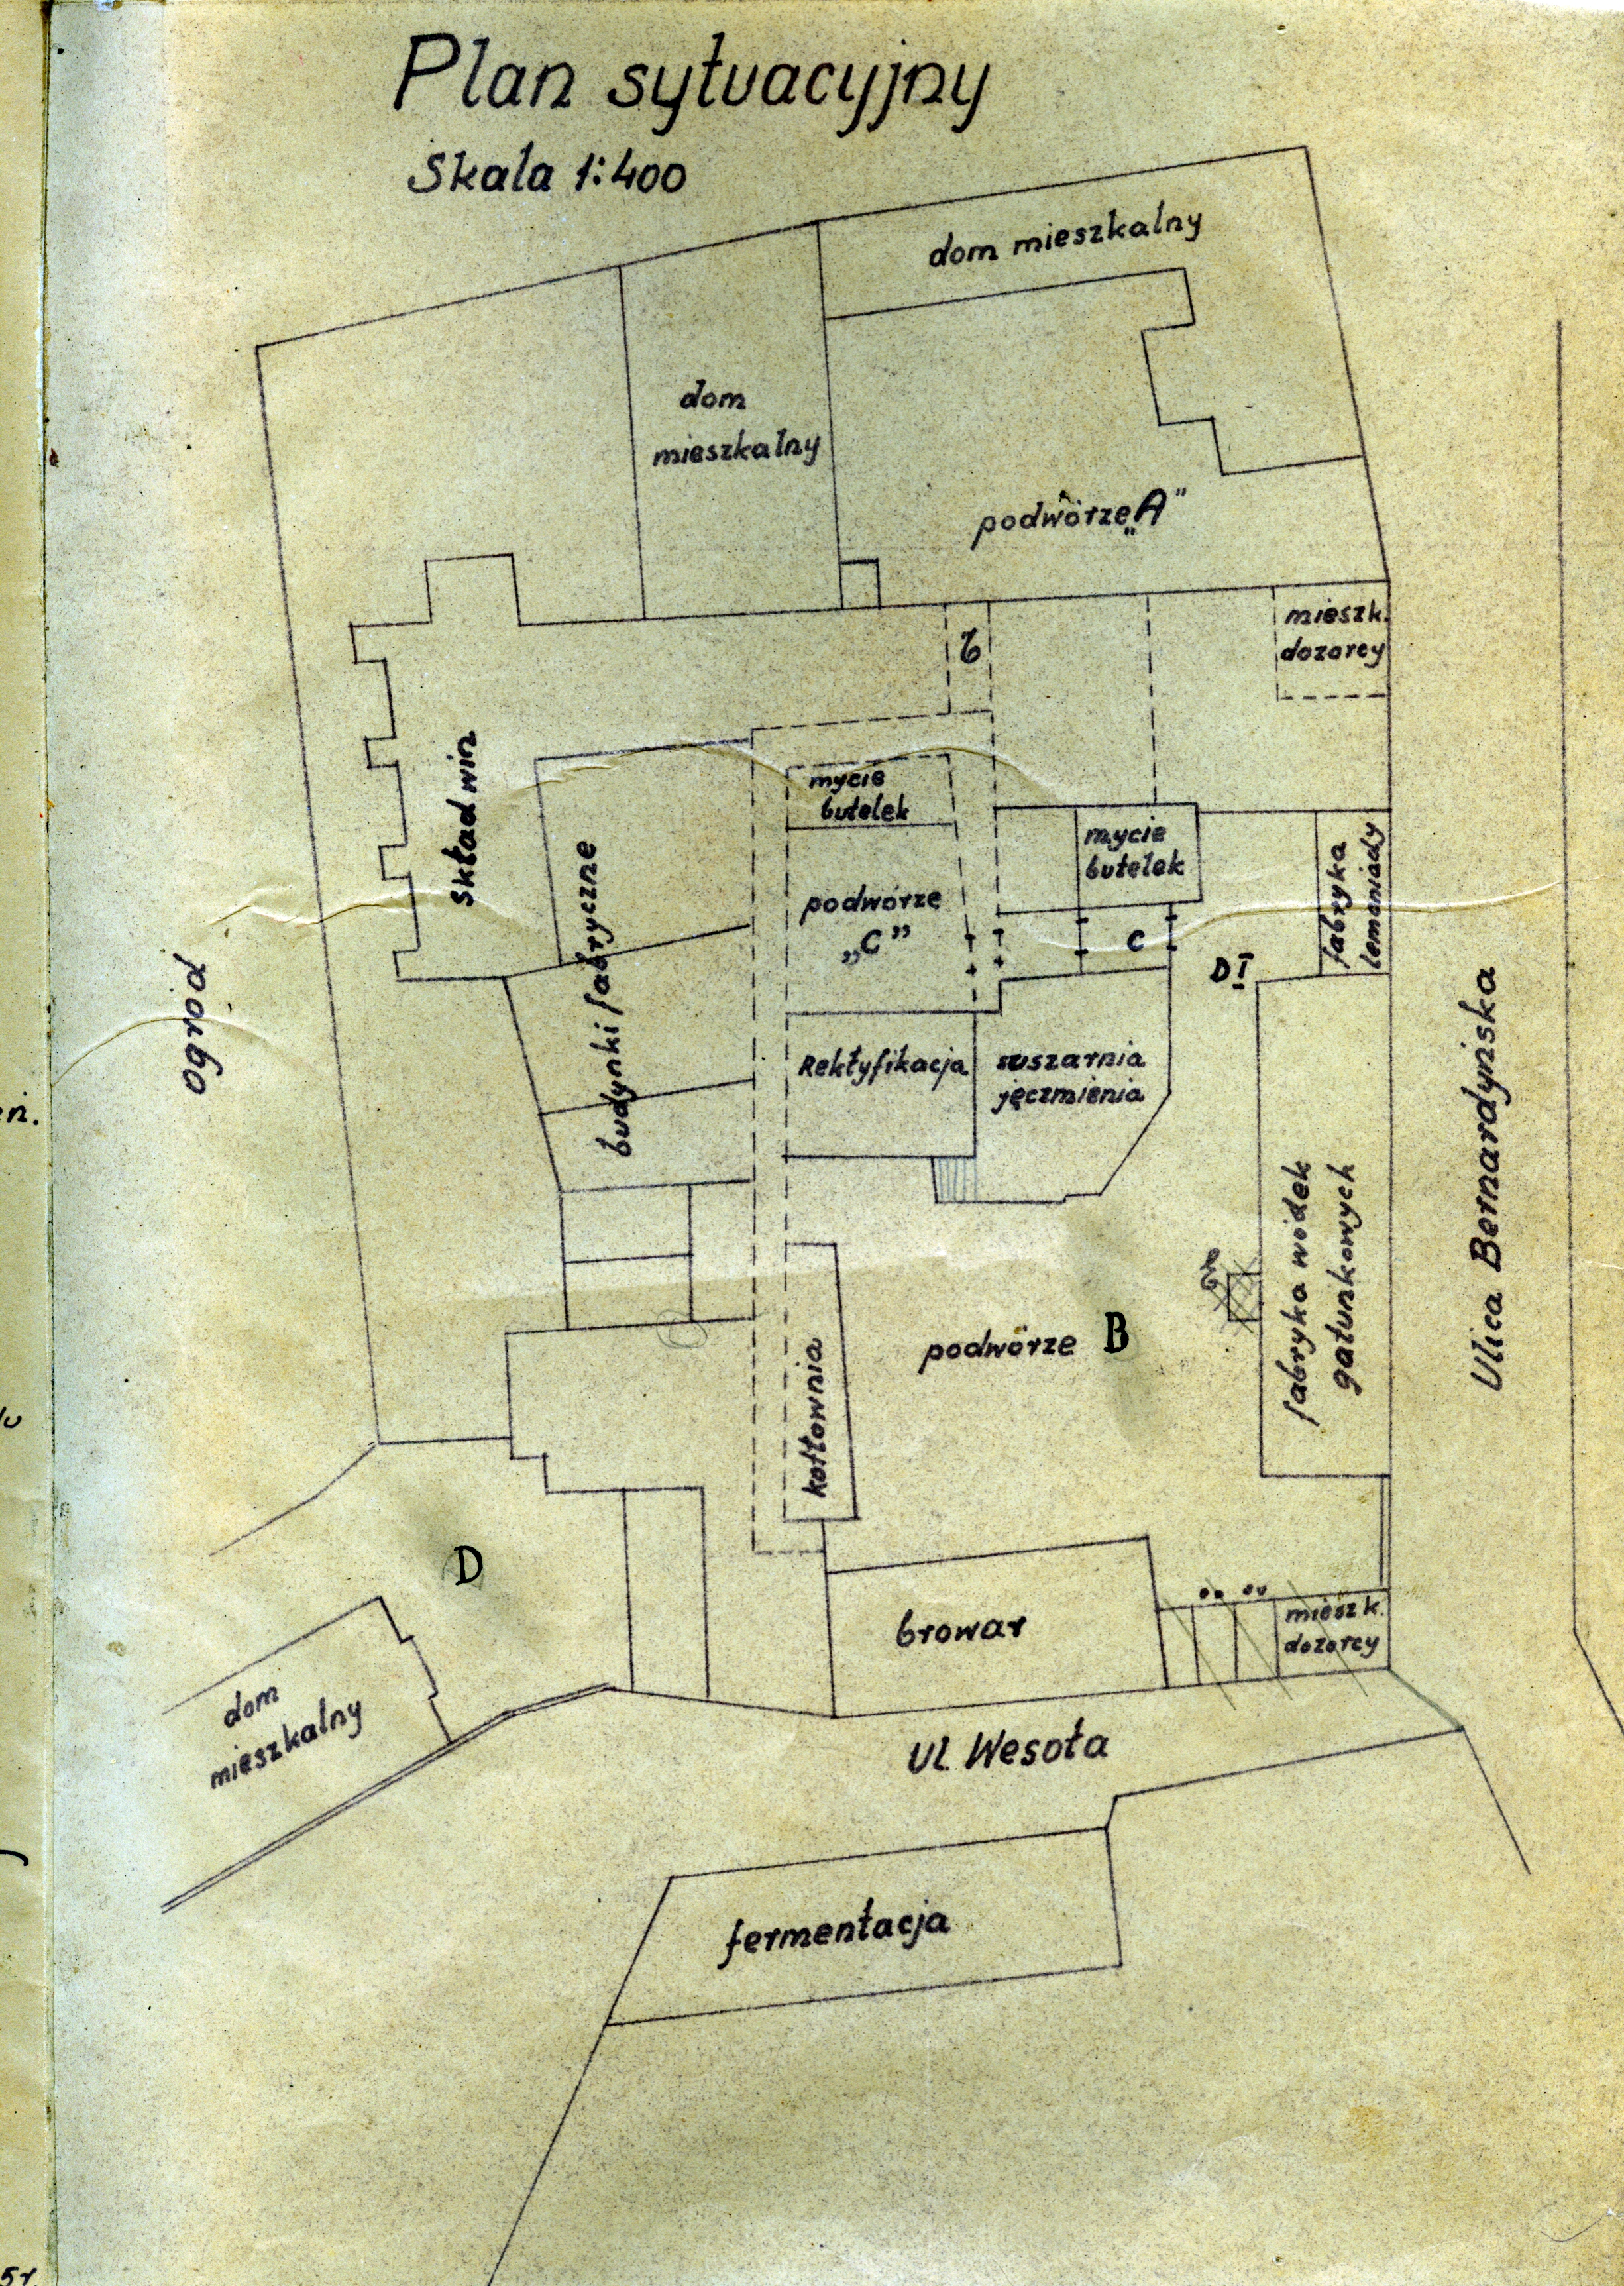 Plan sytuacyjny
Skala 1:400
dom mieszkalny
dom
mieszkalny
podwórze „A”
mieszk.
dozorcy
b
Skład win
mycie
butelek
mycie
butelek
fabryka
lemoniady
podwórze
„C”
C
D I
budynki fabryczne
ogród
Rektyfikacja
suszarnia
jęczmienia
Ulica Bernardyńska
fabryka wódek
gatunkowych
podwórze B
kotłownia
D
browar
mieszk.
dozorcy
dom
mieszkalny
ul. Wesoła
fermentacja
5r.